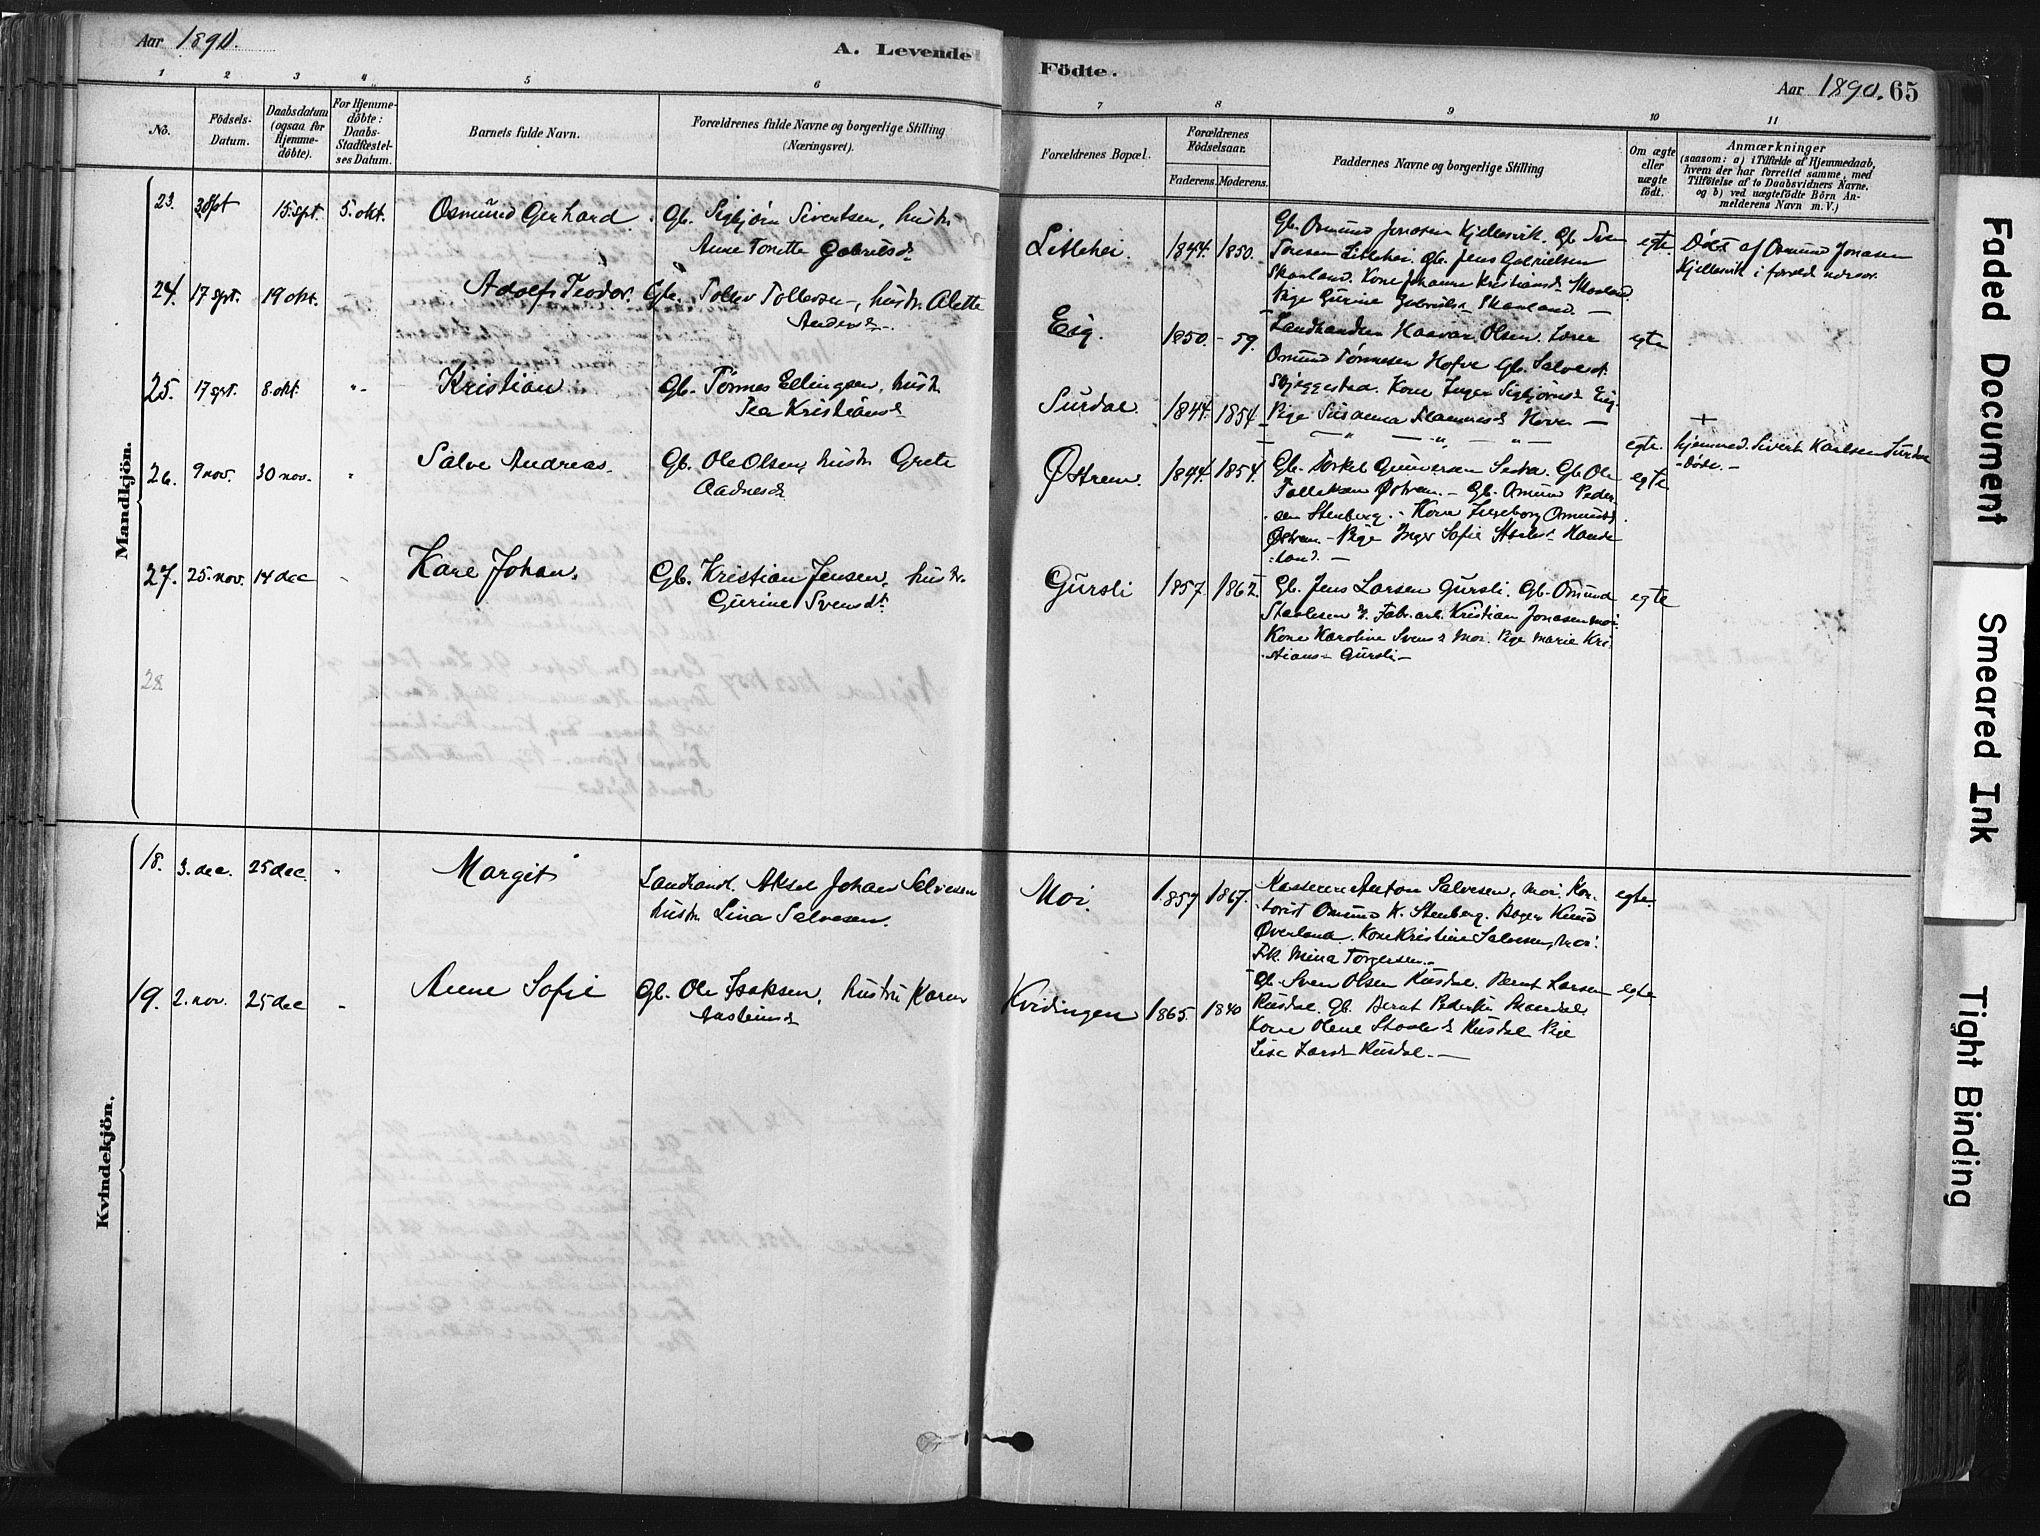 Aar 1890.
A. Levende
Födte.
Aar 1890. 65
1 2 3 4 5 6 7 8 9 10 11
No.
Födsels-
Datum.
Daabsdatum
(ogsaa for
Hjemme-
döbte).
For Hjemme-
döbte:
Daabs-
Stadfæstel-
ses Datum.
Barnets fulde Navn.
Forældrenes fulde Navne og borgerlige Stilling
(Næringsvei).
Forældrenes Bopæl.
Forældrenes
Födselsaar.
Faderens. Moderens.
Faddernes Navne og borgerlige Stilling
Om ægte
eller
uægte
födt.
Anmærkninger
(saasom: a) i Tilfælde af Hjemmedaab,
hvem der har forrettet samme, med
Tilföielse af to Daabsvidners Navne.
og b) ved uægtefödte Börn An-
melderens Navn m. V.)
Mandkjön.
23. 15. spt. 5. okt. Osmund Gerhard. Gb. Sigbjørn Sivertsen, hustr.
Anne Tonette Gabrielsd.
Litlehei. 1844. 1850.
Gb. Osmund Jonasen Kjellesvik. Gb. Sven
Litlehei. Gb. Jens Gabrielsen
Skaaland. Kone Johanne Kristiansd. Skaaland
Pige Gurine Gabrielsd. Skaaland. —
egte. Døbt af Osmund Jonasen
Kjellesvik i foræld. nærvær.
24. 17 spt. 19 okt. Adolf Teodor. Gb. Tollev Tollevsen, hustr. Alette
Eig. 1850. - 59.
Landhandler Haavar Olsen. Lærer
Osmund Tønnesen Hofve Gb. Salve
Skjeggestad. Kone Inger Sigbjørnsd. Eig.
Pige Susanna Hove —
egte
25. 17 spt. 8. okt. "- Kristian Gb. Tønnes Ellingsen, hustr.
Tea Kristiansd.
Surdal. 1844. 1854
— " — " — " —
egte. +
hjemmed. Sivert Karlsen Surdal
- døde. -
26. 9 nov. 30 nov. " Salve Andreas. Gb. Ole Olsen, hustr. Grete
Aadnesd.
Østrem. 1844. 1854.
Gb. Torkel Gunversen Gb. Ole
Østrem. — Gb. Osmund Peder-
sen Stenberg. - Kone Ingeborg Osmundsd.
Østrem. - Pige Inger Sofie Hande
-land. —
egte
27. 25. nov. 14 dec - Kare Johan. Gb. Kristian Jensen, hustr.
Gurine Svensdt.
Gursli 1857. 1862.
Gb. Jens Larsen Gursli. Gb. Osmund
Stavlesen Fabr.arb. Kristian Jonasen moi.
Kone Karoline Svensd. moi. Pige Marie Kri-
stians- Gursli —
egte
28
Kvindekjön.
18. 3. dec. 25 dec. " Margit Landhandl. Aksel Johan Salvesen
hustr. Lina Salvesen.
Moi. 1857 1867.
Kasserer Anton Salvesen, moi. Kon-
torist Osmund K. Stenberg. Bager Knud
Øverland. Kone Kristine Salvesen, moi.
Frk. Mina Torgersen.
egte.
19. 2. nov. 25 dec - Anne Sofie Gb. Ole Isaksen, hustru Karen
Aasteinsd
Kvidingen 1865. 1840
Gb. Sven Olsen Rusdal. Bernt Larsen
Rusdal. Gb. Bernt Pedersen
Kone Olene Rusdal Pige
Lise Larsd. Rusdal. —
egte
Faded Document
Smeared Ink
Tight Binding